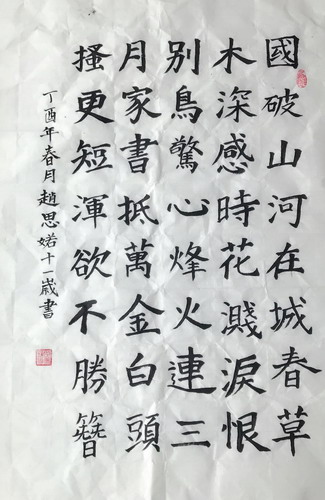 國破山河在城春草
木深感時花濺淚恨
别鳥驚心烽火連三
月家書抵萬金白頭
搔更短渾欲不勝簪
丁酉年春月趙思婼十一歲書